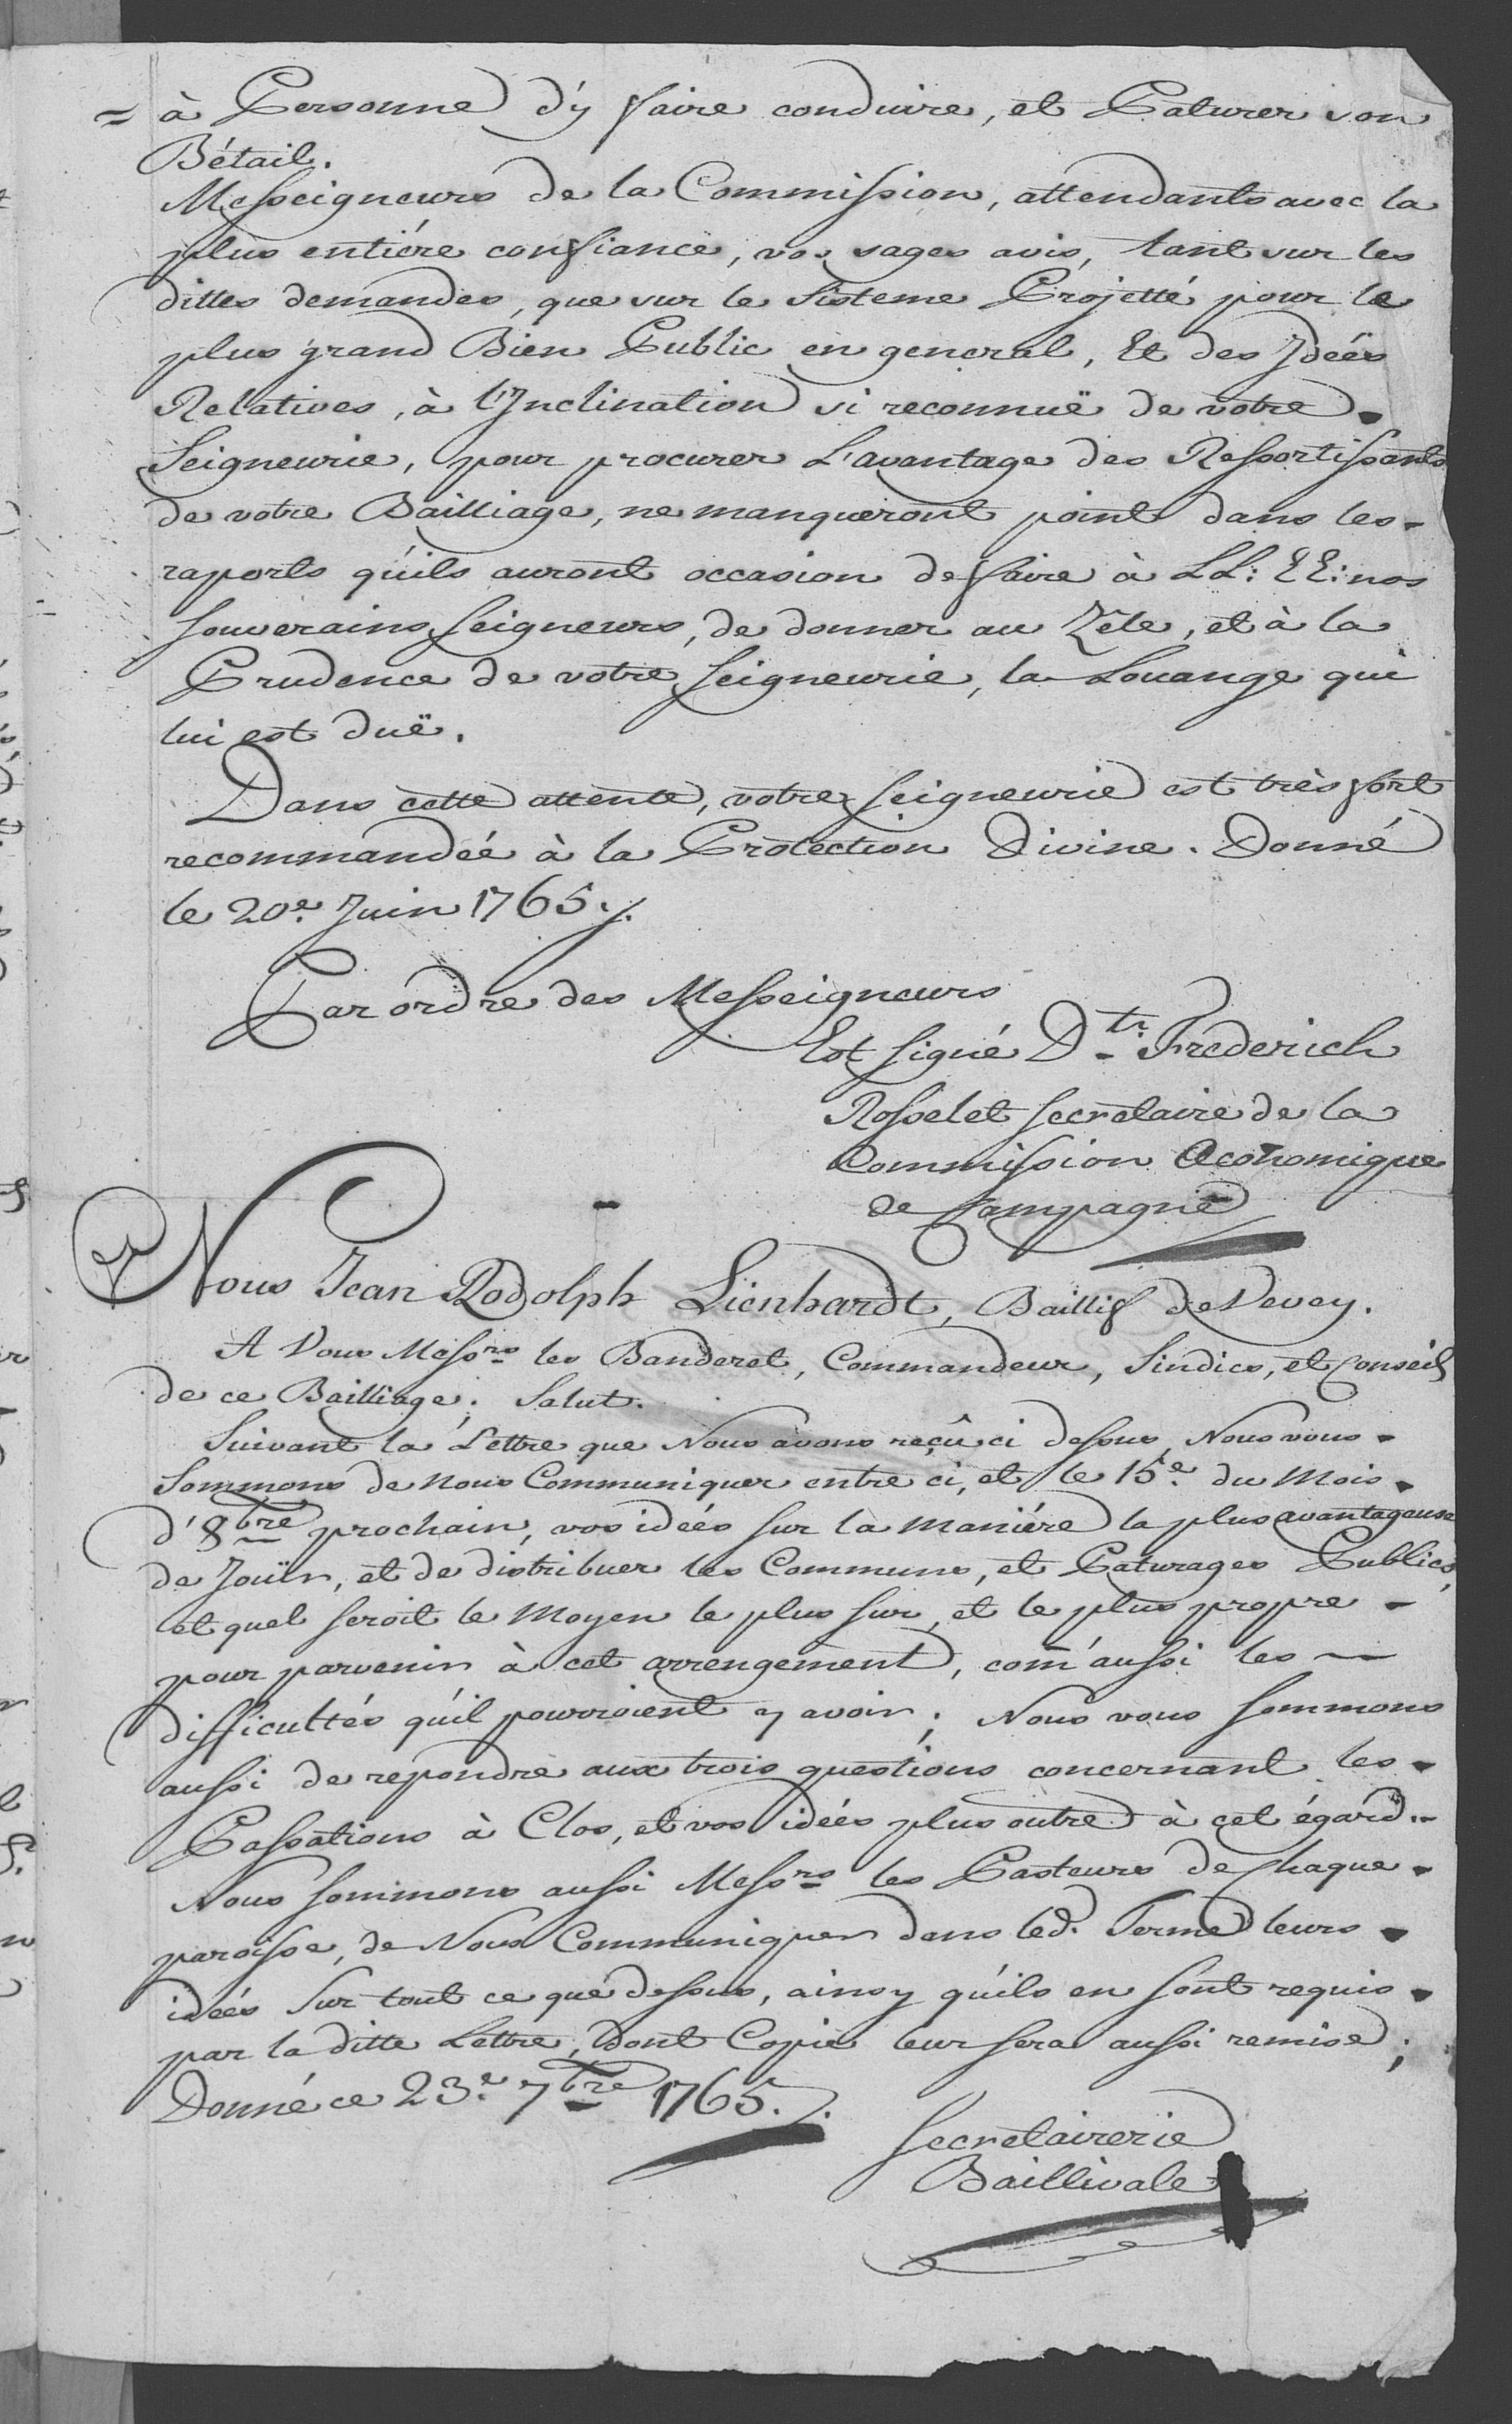 = à Personne d'y faire conduire, et Paturer son
Bétail.
Messeigneurs de la Commission, attendants avec la
plus entiére confiance, vos sages avis, tant sur les
dittes demandes, que sur le Sisteme Projetté pour le
plus grand Bien Public en general, Et des Jdées
Relatives, à l'Jnclination si reconnuë de votre
Seigneurie, pour procurer L'avantage des Ressortissants
de votre Bailliage, ne manqueront point dans les-
raports qu'ils auront occasion de faire à LL: EE: nos
souverains Seigneurs, de donner au Zéle, et à la
Prudence de votre Seigneurie, la Louange qui
lui est duë.
Dans cette attente, votre Seigneurie est très fort
recommandée à la Protection Divine. Donné
le 20e. Juin 1765./.
Par ordre des Messeigneurs
Est signé D.tr Frederich
Rosselet secretaire de la
Commission Oeconomique
de Campagne
Nous Jean Rodolph Lienhardt, Baillif de Vevey.
A Vous Messrs les Banderet, Commandeur, Sindics, et Conseils
de ce Bailliage; Salut.
Suivant la Lettre que Nous avons reçû ci dessus, Nous vous
Sommons de nous Communiquer entre ci, et le 15e. du Mois
d'8bre prochain, vos idées sur la maniére la plus avantageuse
de Jouïr, et de distribuer les Communs, et Paturages Publics,
et quel seroit le Moyen le plus sur, et le plus propre -
pour parvenir à cet arrengement, com̄'aussi les
difficultés qu'il pourroient y avoir; Nous vous sommons
aussi de repondre aux trois questions concernant les
Passations à Clos, et vos idées plus outre à cet égard.-
Nous sommons aussi Messrs les Pasteurs de Chaque
paroisse, de Nous Communiquer dans led. Terme leurs
idées Sur tout ce que dessus, ainsy qu'ils en sont requis
par la ditte Lettre, dont Copie leur sera aussi remise;
Donné ce 23e. 7bre 1765./.
Secretairerie
Baillivale